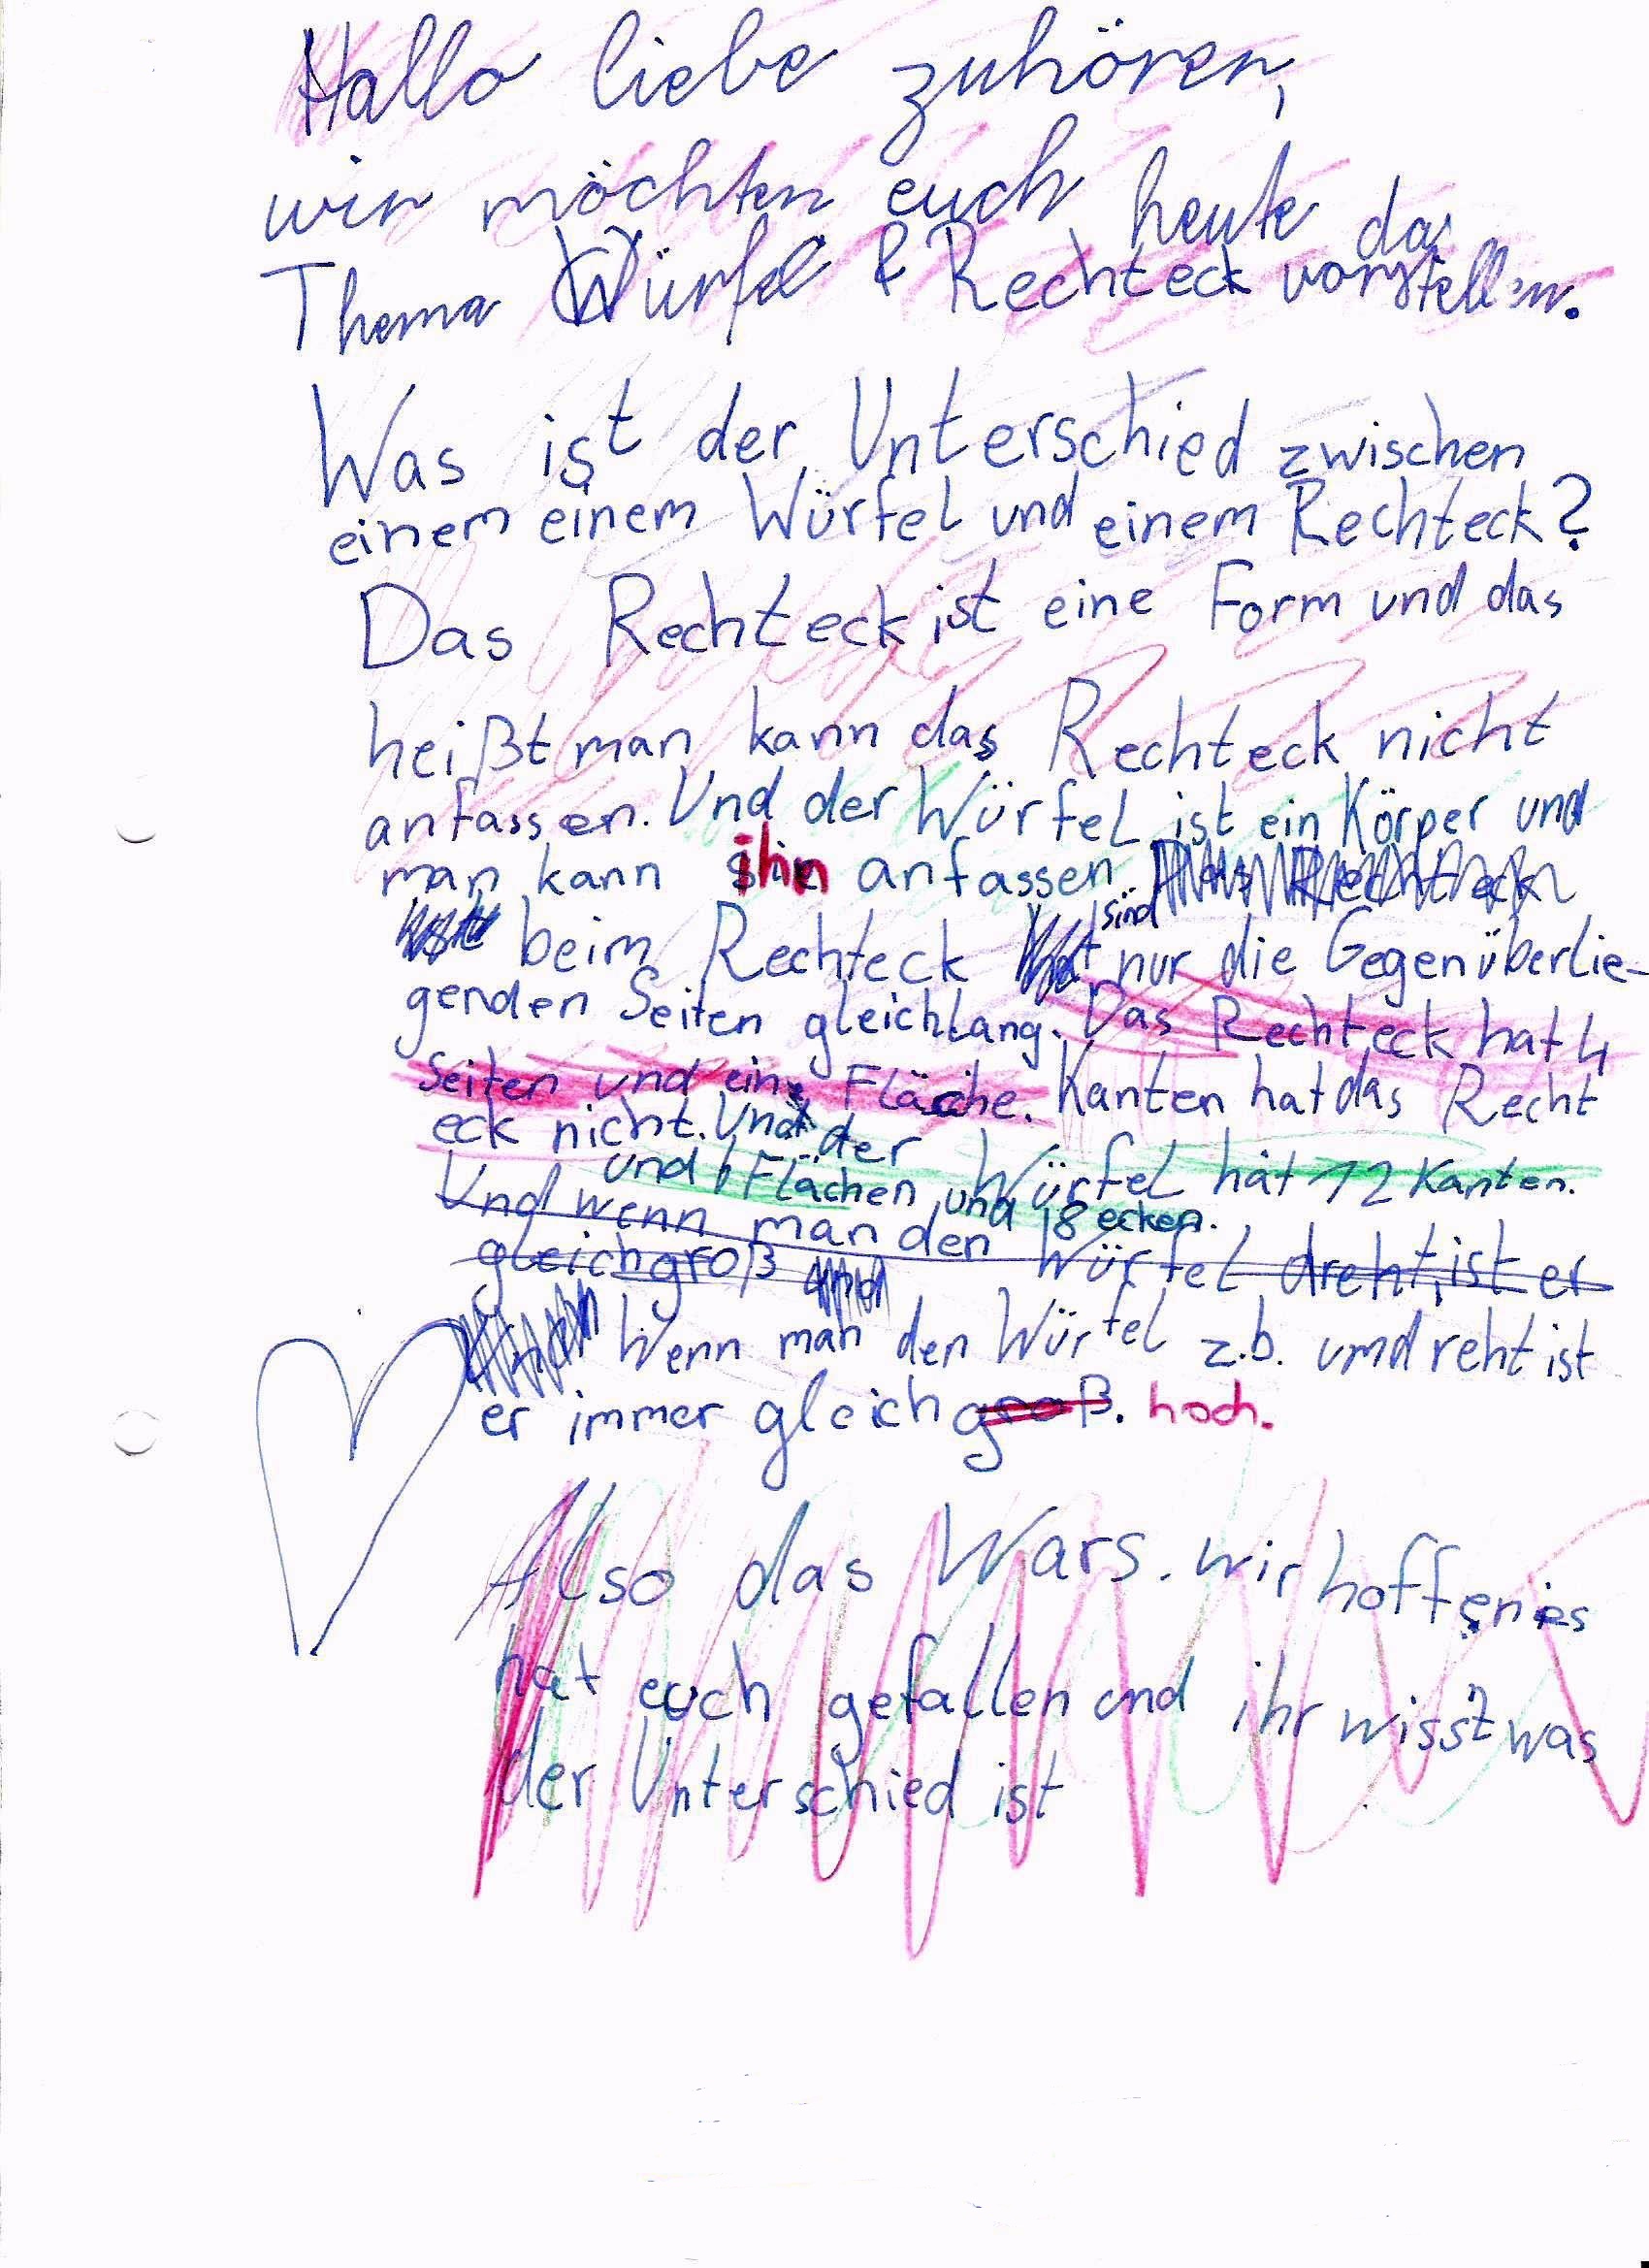 Hallo liebe zuhören,
wir möchten euch heute das
Thema Würfel & Rechteck vorstellen.
Was ist der Unterschied zwischen
einem einem Würfel und einem Rechteck?
Das Rechteck ist eine Form und das
heißt man kann das Rechteck nicht
anfassen. Und der Würfel ist ein Körper und
man kann ihn anfassen. Das Rechteck
beim Rechteck hat sind nur die Gegenüberlie-
genden Seiten gleichlang. Das Rechteck hat 4
Seiten und eine Fläche. Kanten hat das Recht
eck nicht. Und der Würfel hat 12 Kanten.
und 6 Flächen und 8 ecken.
Und wenn man den Würfel dreht, ist er
gleichgroß und
Wenn man den Würfel z.b. umdreht ist
er immer gleich groß. hoch.
Also das Wars. wir hoffen es
hat euch gefallen und ihr wisst was
der Unterschied ist